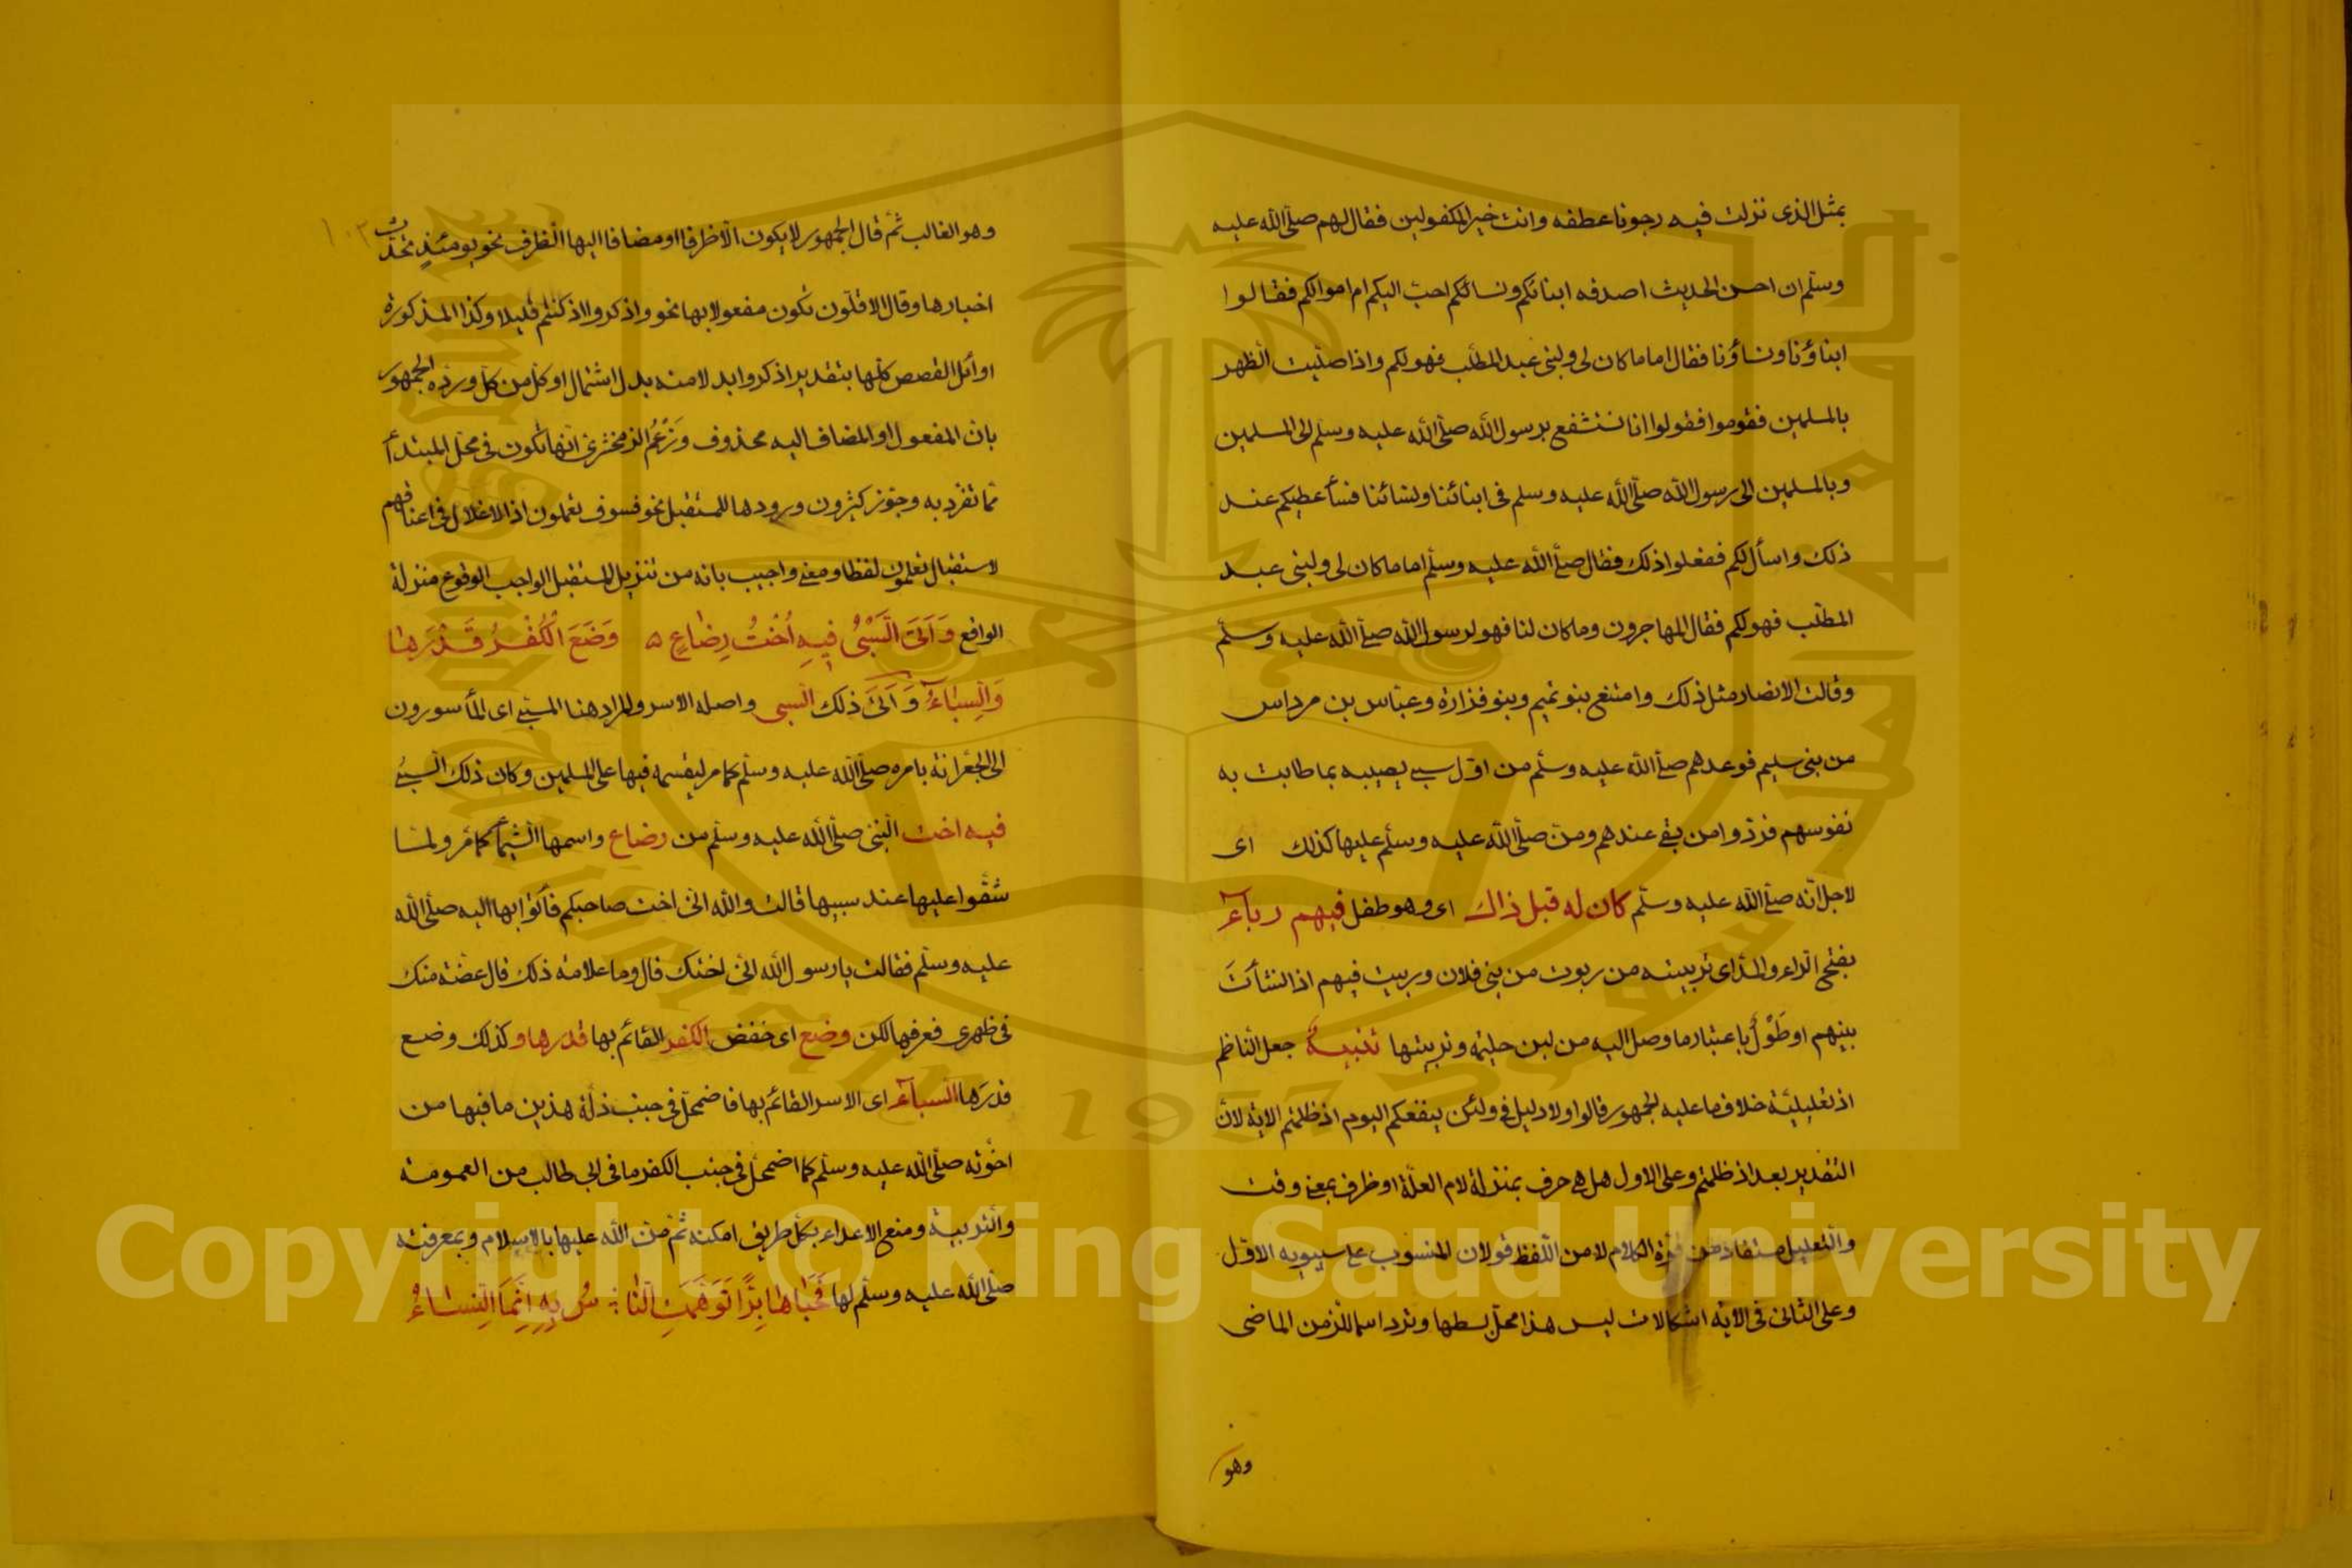 بمثل الذى نزلت فيه رجونا عطفه وانت خير المكفولين فقال لهم صلى الله عليه
وسلم ان احسن الحديث اصدقه ابنائكم ونسائكم احب اليكم ام اموالكم فقالوا
ابناؤنا ونساؤنا فقال اما ما كان لى ولبنى عبد المطلب فهو لكم واذا صليت الظهر
بالمسلمين فقوموا فقولوا انا نستشفع برسول الله صلى الله عليه وسلم الى المسلمين
وبالمسلمين الى رسول الله صلى الله عليه وسلم فى ابنائنا ونسائنا فسأعطيكم عند
ذلك واسأل لكم ففعلوا ذلك فقال صلى الله عليه وسلم اما ما كان لى ولبنى عبد
المطلب فهو لكم فقال المهاجرون وما كان لنا فهو لرسول الله صلى الله عليه وسلم
وقالت الانصار مثل ذلك وامتنع بنو تميم وبنو فزارة وعباس بن مرداس
من بنى سليم فوعدهم صلى الله عليه وسلم من اول سبى يصيبه بما طابت به
نفوسهم فردوا من بقى عندهم ومن صلى الله عليه وسلم عليها كذلك اى
لاجل انه صلى الله عليه وسلم كان له قبل ذاك اى وهو طفل فيهم رباء
بفتح الراء والمد اى تربيته من ربوت من بنى فلان وربيت فيهم اذا نشأت
بينهم او طول باعتبار ما وصل اليه من لبن حليمة وتربيتها تنبيه جعل الناظم
اذ تعليلية خلاف ما عليه الجمهور قالوا ولا دليل فى ولئن ينفعكم اليوم اذ ظلمتم الاية لان
التقدير بعد اذ ظلمتم وعلى الاول هل هى حرف بمنزلة لام العلة او ظرف بمعنى وقت
والتعليل مستفاد من قوة الكلام لا من اللفظ قولان المنسوب على سيبويه الاول
وعلى الثانى فى الاية اشكالات ليس هذا محل بسطها وترد اسما للزمن الماضى
وهو
١٠٣
وهو الغالب ثم قال الجمهور لا يكون الا ظرفا او مضافا اليها الظرف نحو يومئذ تحدث
اخبارها وقال الاقلون تكون مفعولا بها نحو واذكروا اذ كنتم قليلا وكذا المذكورة
اوائل القصص كلها بتقدير اذكر او بدلا منه بدل اشتمال او كل من كل ورده الجمهور
بان المفعول او المضاف اليه محذوف وزعم الزمخشرى انها تكون فى محل المبتدأ
مما تفرد به وجوز كثيرون ورودها للمستقبل نحو فسوف تعلمون اذ الاغلال فى اعناقهم
لاستقبال تعلمون لفظا ومعنى واجيب بانه من تنزيل المستقبل الواجب الوقوع منزلة
الواقع وَاَتَى السَّبْىُ فِيهِ اُخْتُ رِضَاعٍ ۵ وَضَعَ الْكُفْرُ قَدْرَهَا
وَالسِّبَاءُ وَاَتَى ذلك السبى واصله الاسر والمراد هنا المسبى اى المأسورون
الى الجعرانة بامره صلى الله عليه وسلم كما مر ليقسمه فيها على المسلمين وكان ذلك السبى
فيه اخت النبى صلى الله عليه وسلم من رضاع واسمها الشيما كما مر ولما
شقوا عليها عند سبيها قالت والله انى اخت صاحبكم فأتوا بها اليه صلى الله
عليه وسلم فقالت يا رسول الله انى اختك قال وما علامة ذلك قال عضة منك
فى ظهرى فعرفها لكن وضع اى خفض الكفر القائم بها قدرها وكذلك وضع
قدرها السباء اى الاسر القائم بها فاضمحل فى جنب ذلة هذين ما فيها من
اخوته صلى الله عليه وسلم كما اضمحل فى جنب الكفر ما فى ابى طالب من العمومة
والتربية ومنع الاعداء بكل طريق امكنه ثم من الله عليها بالاسلام وبمعرفته
صلى الله عليه وسلم لها فَحَبَاهَا بِرًّا تَوَهَّمَتِ النَّا ؛ سُ بِهِ اِنَّمَا النِّسَاءُ
Copyright © King Saud University
King Saud University
1957
جامعة الملك سعود